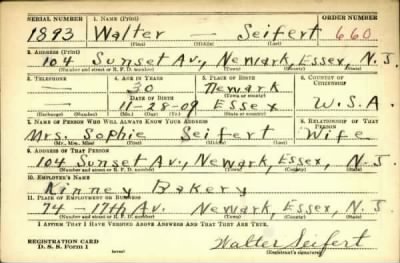 SERIAL NUMBER 1. NAME (Print) ORDER NUMBER
1893 Walter — Seifert 660
(First) (Middle) (Last)
2. ADDRESS (Print)
104 Sunset Av., Newark, Essex, N.J.
(Number and street or R. F. D. number) (Town) (County) (State)
3. TELEPHONE 4. AGE IN YEARS 5. PLACE OF BIRTH 6. COUNTRY OF CITIZENSHIP
— 30 Newark
DATE OF BIRTH (Town or county)
— 11-28-09 Essex U.S.A.
(Exchange) (Number) (Mo.) (Day) (Yr.) (State or country)
7. NAME OF PERSON WHO WILL ALWAYS KNOW YOUR ADDRESS 8. RELATIONSHIP OF THAT PERSON
Mrs. Sophie Seifert Wife
(Mr., Mrs., Miss) (First) (Middle) (Last)
9. ADDRESS OF THAT PERSON
104 Sunset Av., Newark, Essex, N.J.
(Number and street or R. F. D. number) (Town) (County) (State)
10. EMPLOYER'S NAME
Kinney Bakery
11. PLACE OF EMPLOYMENT OR BUSINESS
74 - 17th Av. Newark, Essex, N.J.
(Number and street or R. F. D. number) (Town) (County) (State)
I AFFIRM THAT I HAVE VERIFIED ABOVE ANSWERS AND THAT THEY ARE TRUE.
REGISTRATION CARD
D. S. S. Form 1 (over) Walter Seifert
(Registrant's signature)